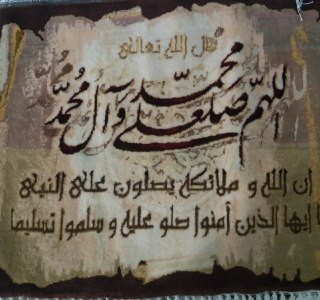 قال الله تعالى
اللهم صل علی محمد وآل محمد
ان الله و ملائكه يصلون على النبي
يا ايها الذين آمنوا صلو عليه و سلموا تسليما